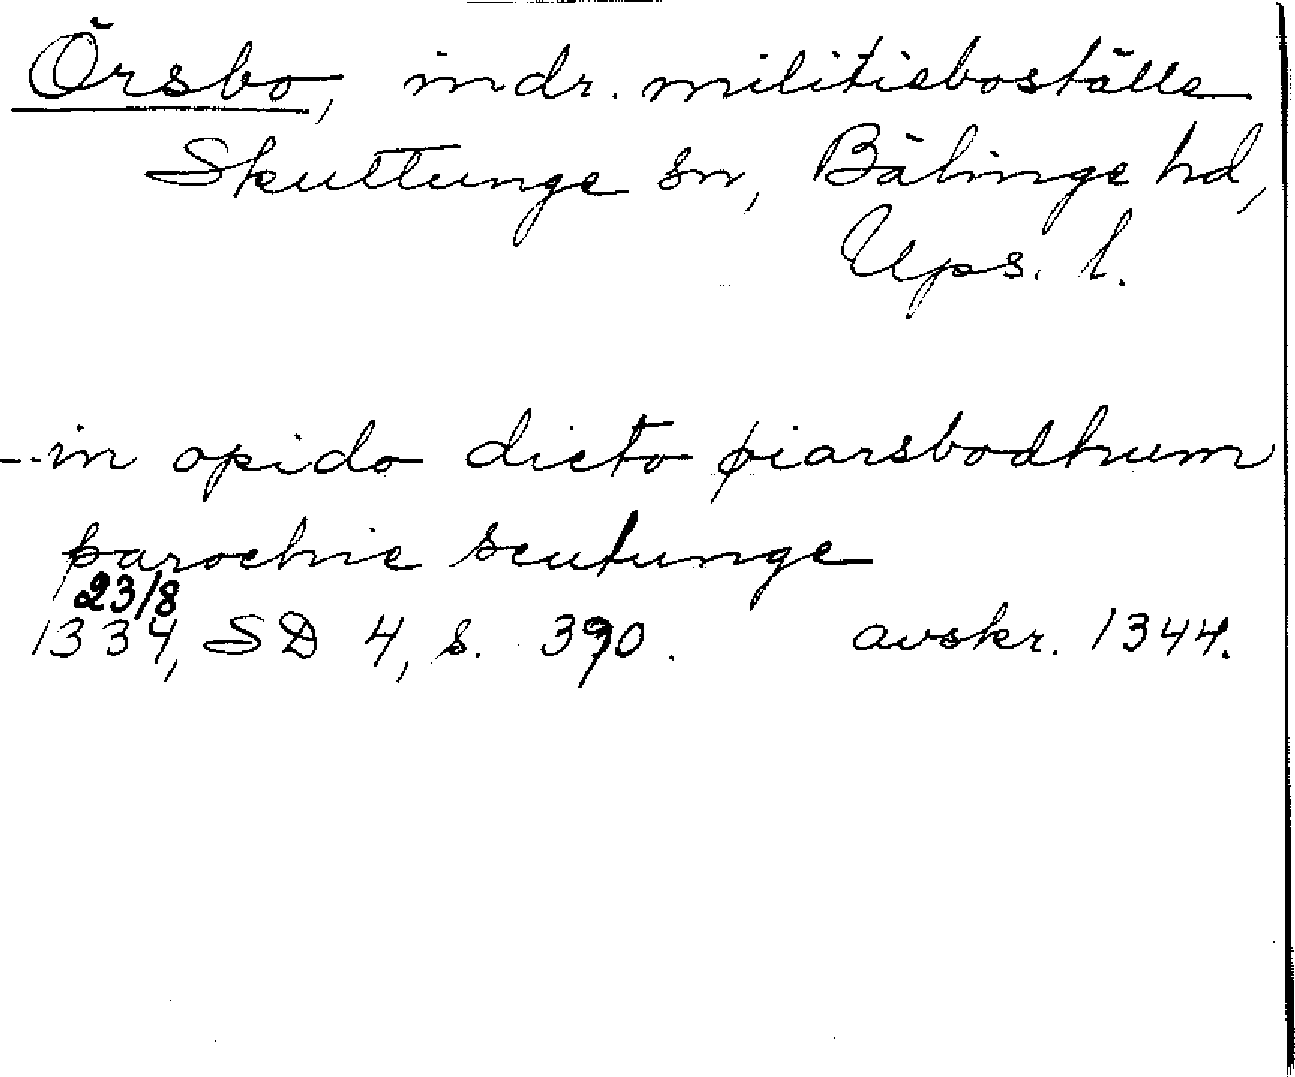 Örsbo, indr. militieboställe
Skuttunge sn, Bälinge hd,
Ups. l.
- in opido dicto þiarsbodhum
parochie scutunge
23/8
1334, SD 4, s. 390. avskr. 1344.